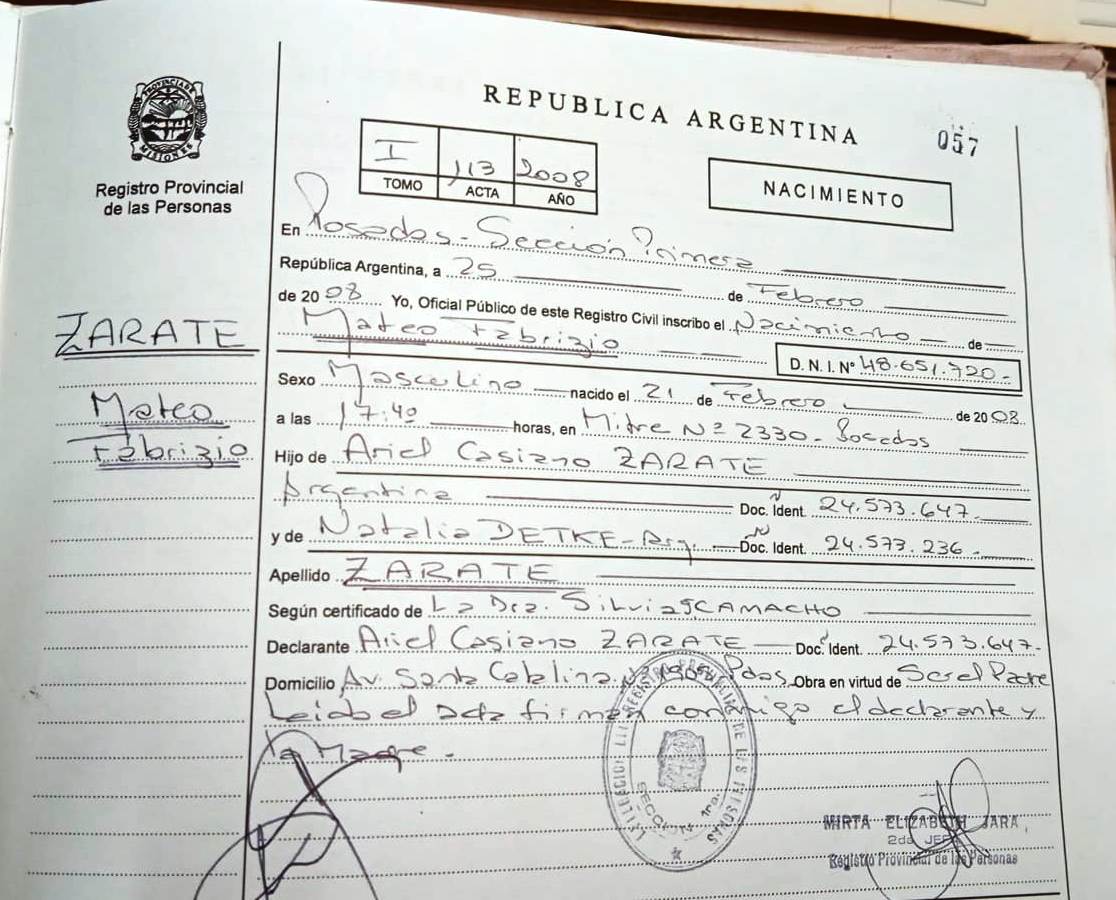 REPUBLICA ARGENTINA
057
PROVINCIA DE MISIONES
Registro Provincial
de las Personas
I 113 2008
TOMO ACTA AÑO
NACIMIENTO
En Posadas - Sección Primera
República Argentina, a 25 de Febrero
de 2008 Yo, Oficial Público de este Registro Civil inscribo el Nacimiento de
Mateo Fabrizio D. N. I. Nº 48.651.720-
ZARATE
Mateo
Fabrizio
Sexo Masculino nacido el 21 de Febrero de 2008
a las 17:40 horas, en Mitre Nº 2330 - Posadas
Hijo de Ariel Casiano ZARATE
Argentina Doc. Ident. 24.573.647.
y de Natalia DETKE - Arg. Doc. Ident. 24.573.236.
Apellido ZARATE
Según certificado de La Dra. Silvia CAMACHO
Declarante Ariel Casiano ZARATE Doc. Ident. 24.573.647.
Domicilio Av. Santa Catalina Pdas Obra en virtud de Ser el Padre
Leida el acta firman conmigo el declarante y
la Madre.
SECCION 1ra.
MIRTA ELIZABETH JARA
2da. JEFE
Registro Provincial de las Personas